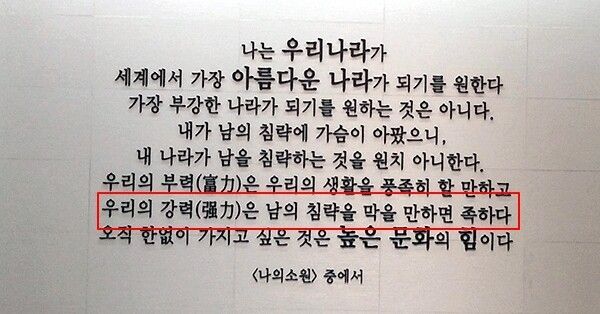 나는 우리나라가
세계에서 가장 아름다운 나라가 되기를 원한다
가장 부강한 나라가 되기를 원하는 것은 아니다.
내가 남의 침략에 가슴이 아팠으니,
내 나라가 남을 침략하는 것을 원치 아니한다.
우리의 부력(富力)은 우리의 생활을 풍족히 할 만하고
우리의 강력(强力)은 남의 침략을 막을 만하면 족하다
오직 한없이 가지고 싶은 것은 높은 문화의 힘이다
〈나의소원〉 중에서